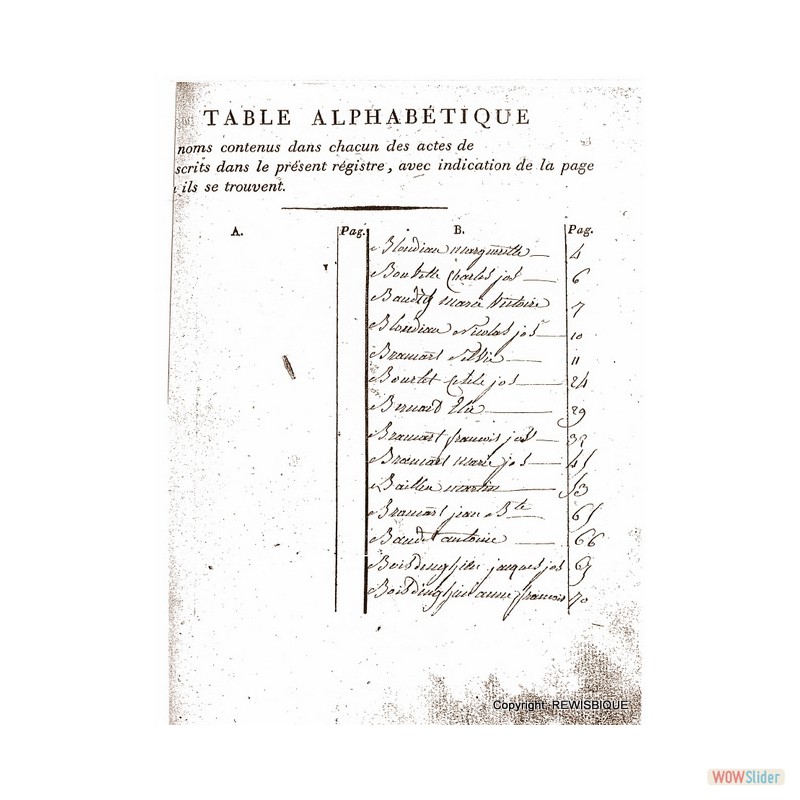 TABLE ALPHABÉTIQUE
noms contenus dans chacun des actes de
scrits dans le présent régistre, avec indication de la page
ils se trouvent.
A. Pag. B. Pag.
Blondiau marguerite 4
Boutelle Charles jos 6
marie Victoire 7
Blondiau Nicolas jos 10
Bramart 11
Bourlet jos 24
Bernard Elie 29
Bramart francois jos 32
Bramart marie jos 45
Baillez martin 53
Bramart jean Bte 65
Baudet antoine 66
jacques jos 69
anne francois 70
Copyright, REWISBIQUE
WOWSlider